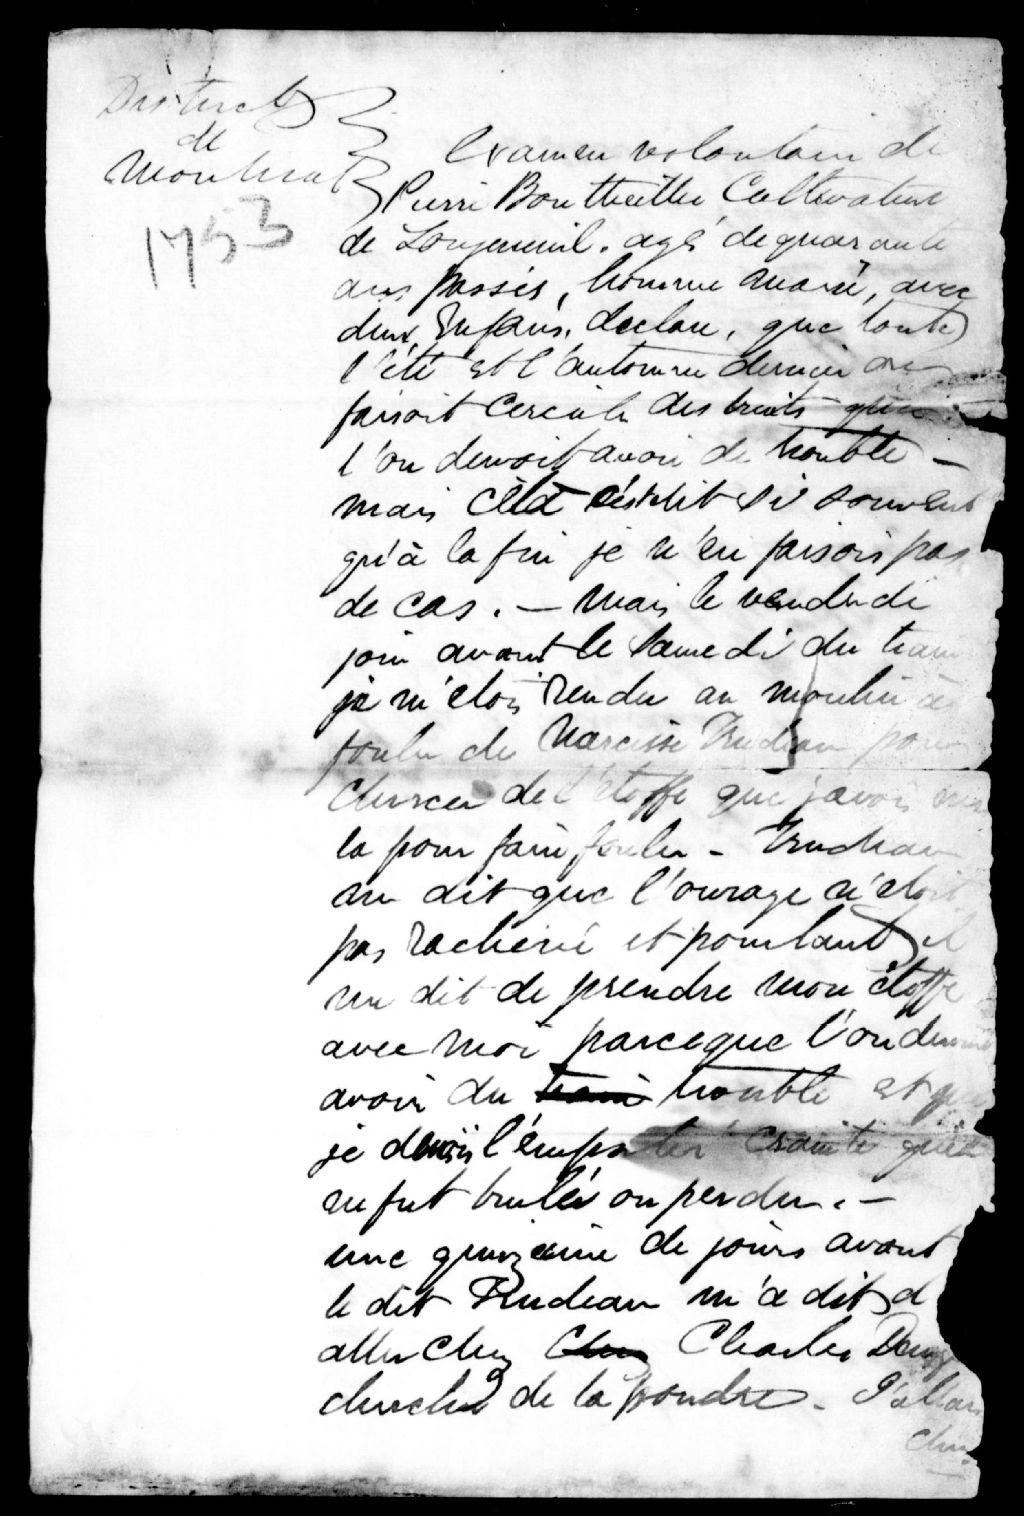 District
de
Montreal
1753
Examen volontaire de
Pierre Boutheiller Cultivateur
de Longueuil. agé de quarante
ans passés, homme marié, avec
deux Enfans. declare, que toute
l'été et l'automne dernier on
faisoit Circule des bruits que
l'on devoit avoir de trouble -
mais Céla s'est dit si souvent
qu'à la fin je n'en faisois pas
de cas. - Mais le vendredi
jour avant le Samedi du train
je m'etois rendu au moulin à
fouler de Narcisse Trudeau pour
chercer de l'étoffe que j'avois mis
la pour faire fouler - Trudeau
me dit que l'ourage n'etoit
pas rachevé et pourtant il
me dit de prendre mon étoffe
avec moi parceque l'on devoit
avoir du trouble et que
je devois l'emporter crainte qu'il
ne fut brulés ou perdu. -
une quinzaine de jours avant
le dit Trudeau m'a dit d
aller chez Chez Charles
chercher de la poudre - J'allais
chez